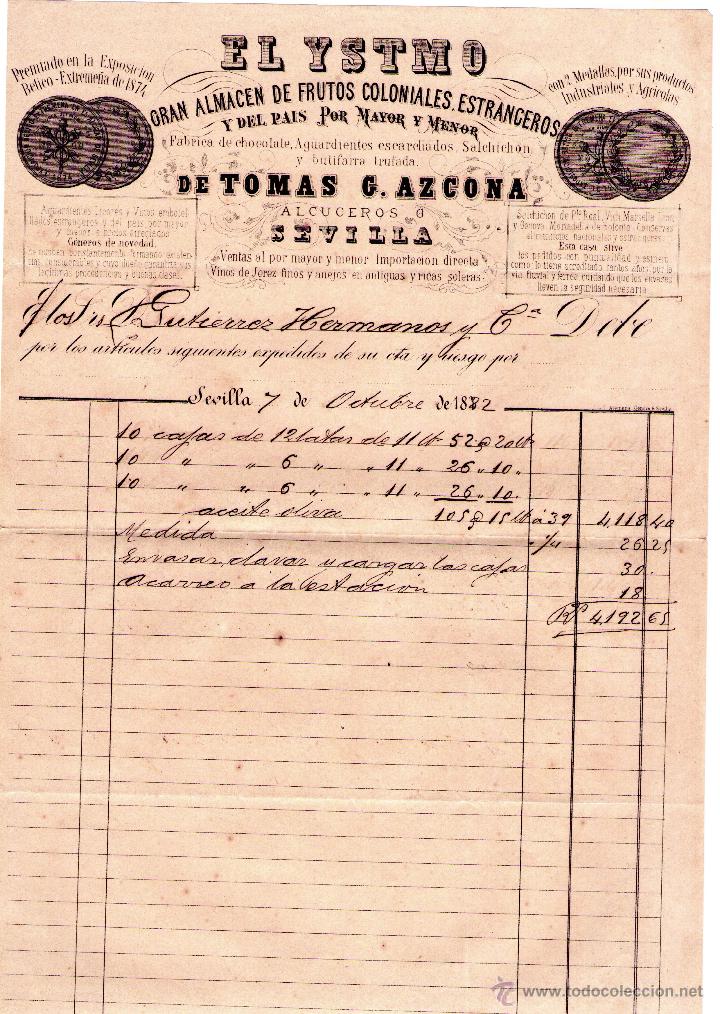 EL YSTMO
Premiado en la Exposicion
Betico-Extremeña de 1874
con 2 Medallas, por sus productos
Industriales y Agricolas
GRAN ALMACEN DE FRUTOS COLONIALES, ESTRANGEROS
Y DEL PAIS POR MAYOR Y MENOR
Fabrica de chocolate, Aguardientes escarchados, Salchichon
y butifarra trufada.
DE TOMAS G. AZCONA
ALCUCEROS 6
SEVILLA
Ventas al por mayor y menor Importacion directa
Vinos de Jerez finos y añejos en antiguas y ricas soleras.
Aguardientes Licores y Vinos embote
llados estrangeros y del pais por mayor
y menor a precios arreglados
Géneros de novedad.
Salchichon de Pto Real, Vich, Marsella
y Genova. Mortadella de Bolonia. Conservas
alimenticias nacionales y estrangeras.
Esta casa sirve
los pedidos con puntualidad y esmero
como lo tiene acreditado tantos años por la
via fluvial y ferrea cuidando que los envases
lleven la seguridad necesaria
A los Sres Gutierrez Hermanos y Ca Debe
por los articulos siguientes expedidos de su cta y riesgo por
Sevilla 7 de Octubre de 1882
10 cajas de 12 latas de 11 lt 52 @ 20 lt
10 " " 6 " " 11 " 26 " 10 "
10 " " 6 " " 11 " 26 " 10 "
aceite oliva 105 @ 15 lt á 39 4,118 40
Medida " 1/4 26 25
Envasar, clavar y cargar las cajas 30.
Acarreo a la estacion 18
Rs 4,192 65
www.todocoleccion.net